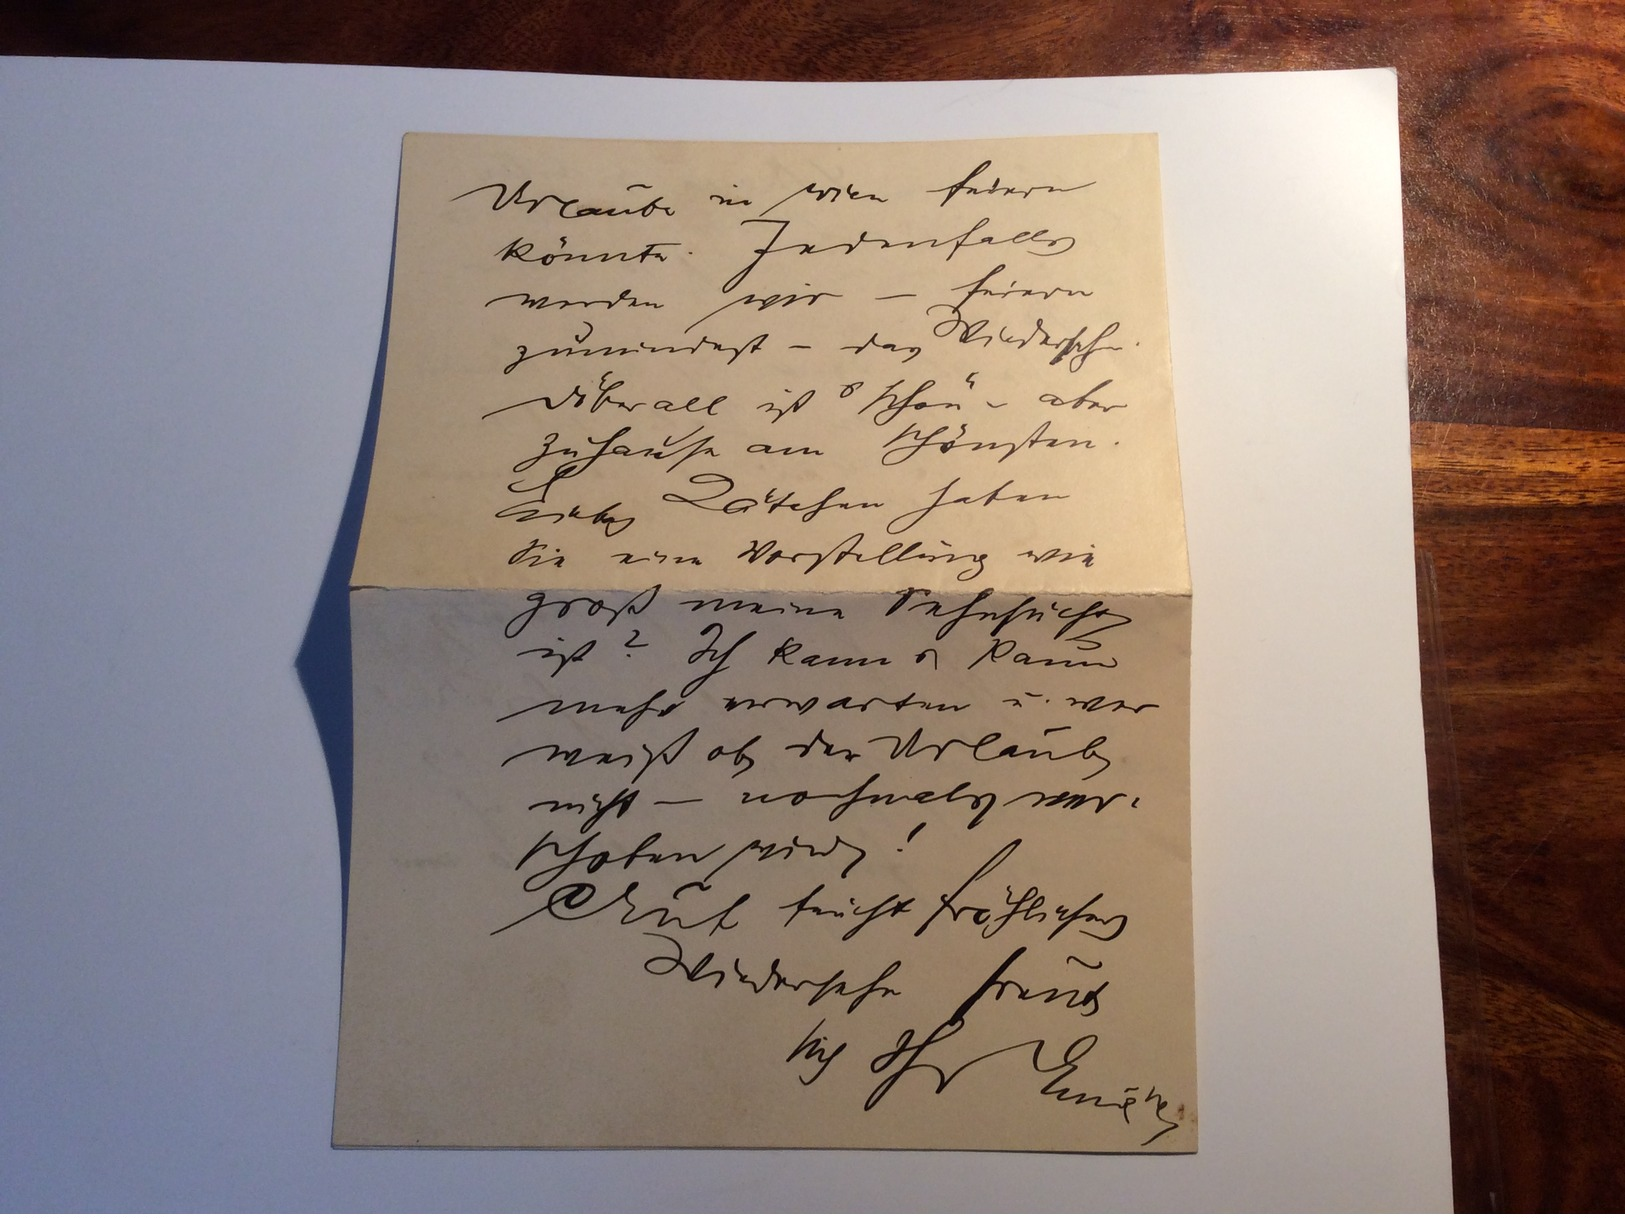 Urlaube in Wien feiern
könnte. Jedenfalls
werden wir – feiern
zumindest – das Wiedersehn.
Überall ist schön – aber
zuhause am schönsten.
Liebes Kätchen haben
Sie eine Vorstellung wie
groß meine Sehnsucht
ist? Ich kanns kaum
mehr erwarten u. wer
weiß ob der Urlaub
nicht – nochmals ver-
schoben wird!
Auf recht fröhliches
Wiedersehn freut
sich Ihr